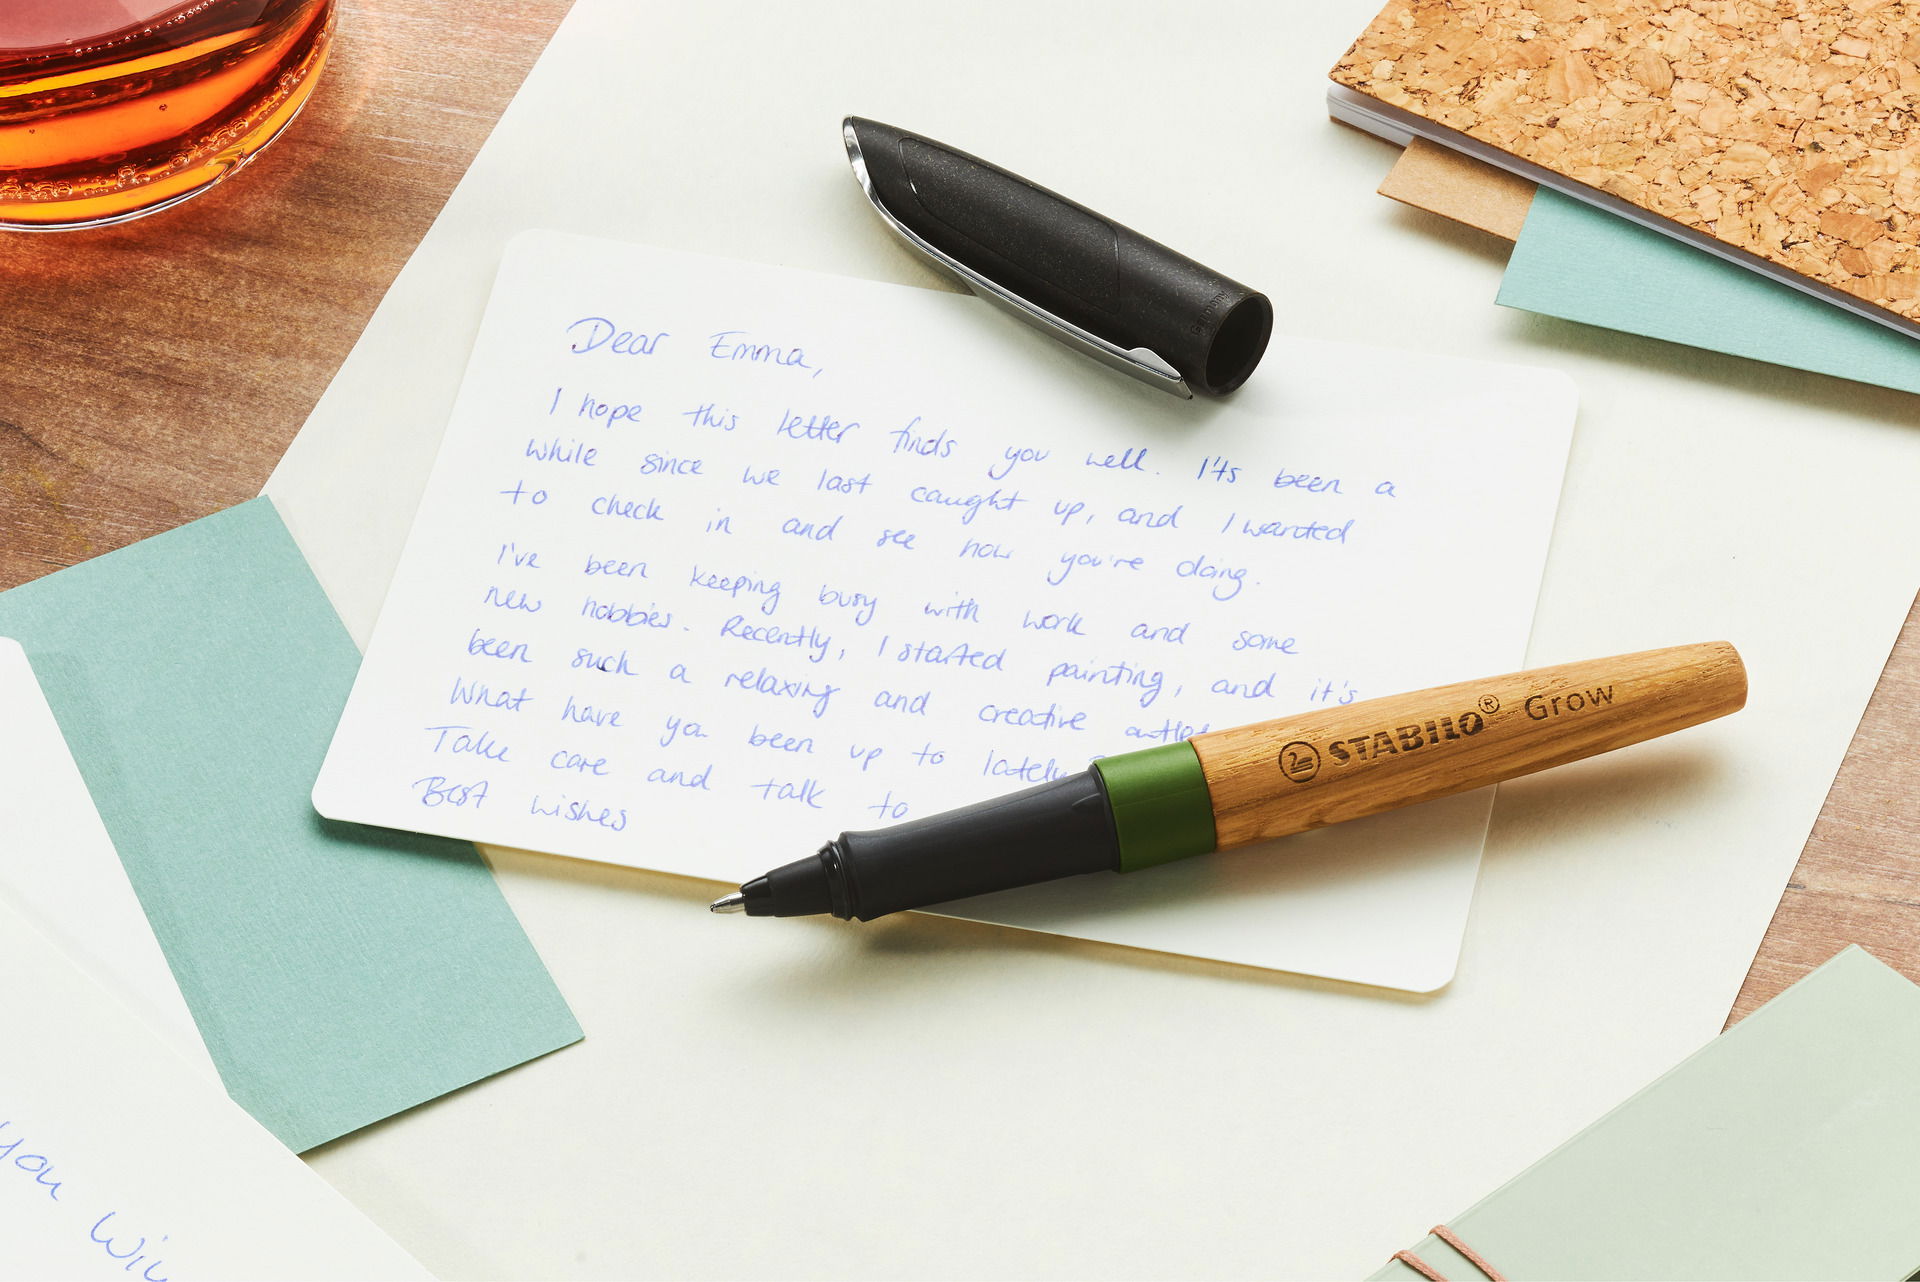 Dear Emma,
I hope this letter finds you well. It's been a
while since we last caught up, and I wanted
to check in and see how you're doing.
I've been keeping busy with work and some
new hobbies. Recently, I started painting, and it's
been such a relaxing and creative outlet
What have you been up to lately
Take care and talk to
Best wishes
STABILO® Grow
Germany
you